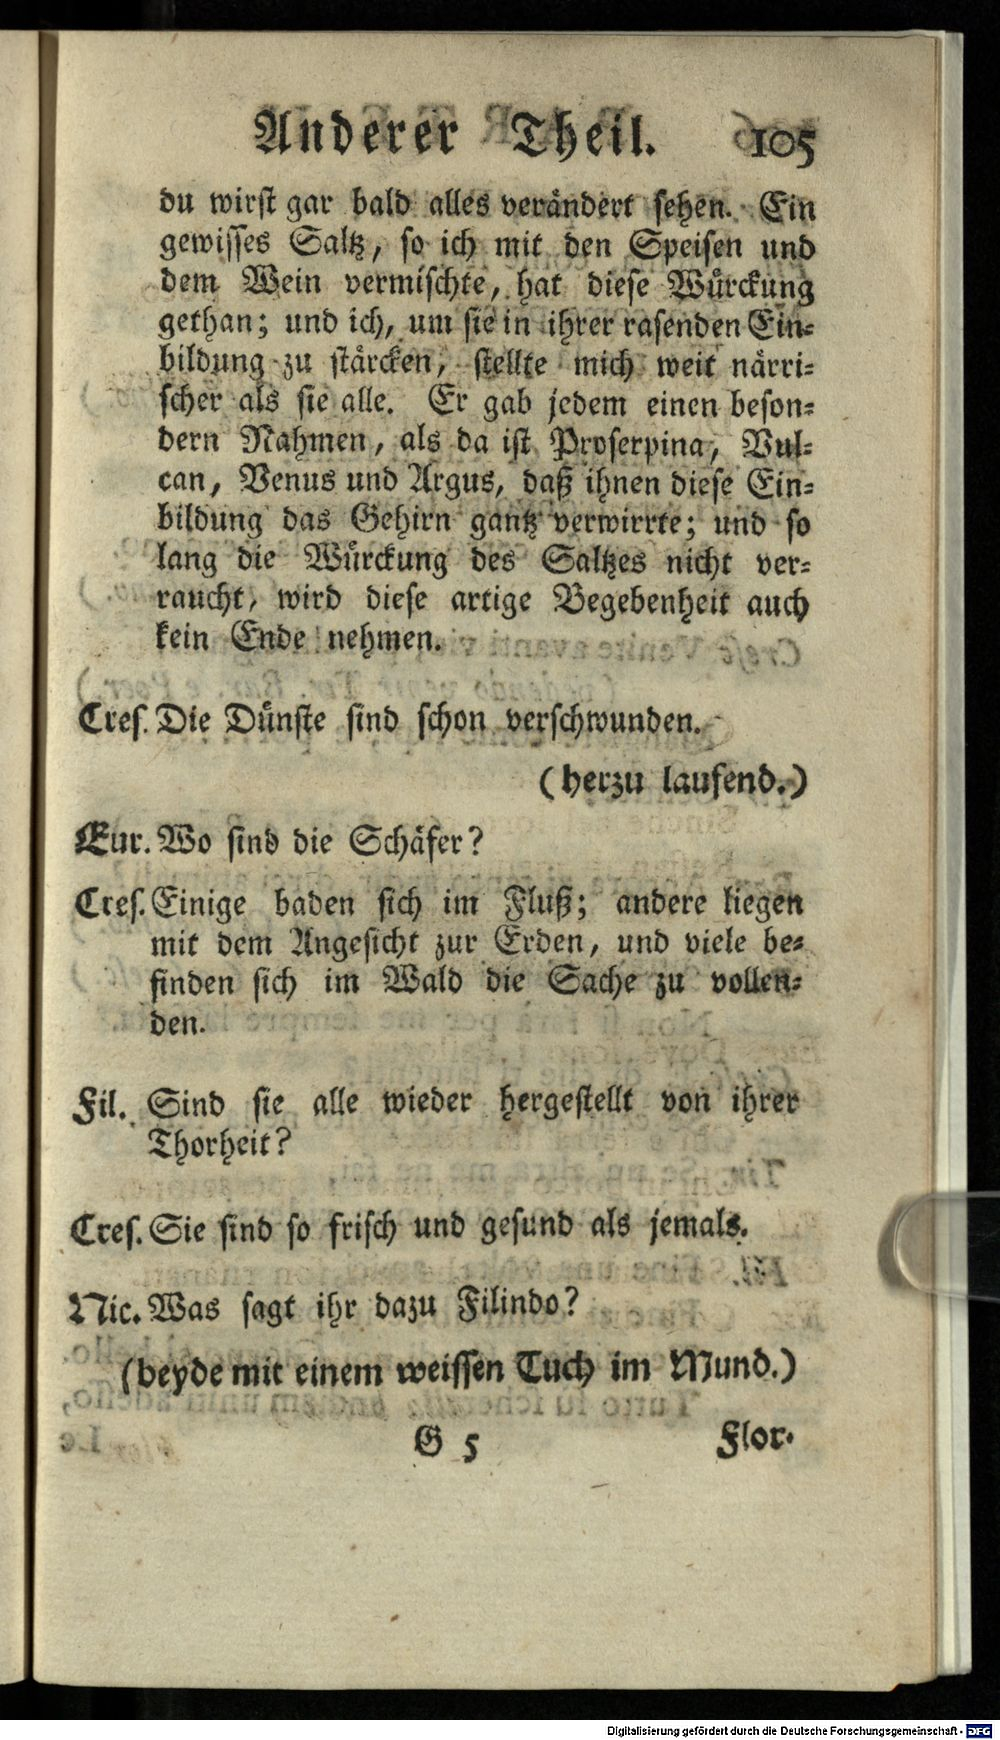 Anderer Theil. 105
du wirst gar bald alles verändert sehen. Ein
gewisses Saltz, so ich mit den Speisen und
dem Wein vermischte, hat diese Würckung
gethan; und ich, um sie in ihrer rasenden Ein-
bildung zu stärcken, stellte mich weit närri-
scher als sie alle. Er gab jedem einen beson-
dern Nahmen, als da ist Proserpina, Vul-
can, Venus und Argus, daß ihnen diese Ein-
bildung das Gehirn gantz verwirrte; und so
lang die Würckung des Saltzes nicht ver-
raucht, wird diese artige Begebenheit auch
kein Ende nehmen.
Cres. Die Dünste sind schon verschwunden.
(herzu laufend.)
Eur. Wo sind die Schäfer?
Cres. Einige baden sich im Fluß; andere liegen
mit dem Angesicht zur Erden, und viele be-
finden sich im Wald die Sache zu vollen-
den.
Fil. Sind sie alle wieder hergestellt von ihrer
Thorheit?
Cres. Sie sind so frisch und gesund als jemals.
Nic. Was sagt ihr dazu Filindo?
(beyde mit einem weissen Tuch im Mund.)
G 5 Flor.
Digitalisierung gefördert durch die Deutsche Forschungsgemeinschaft - DFG